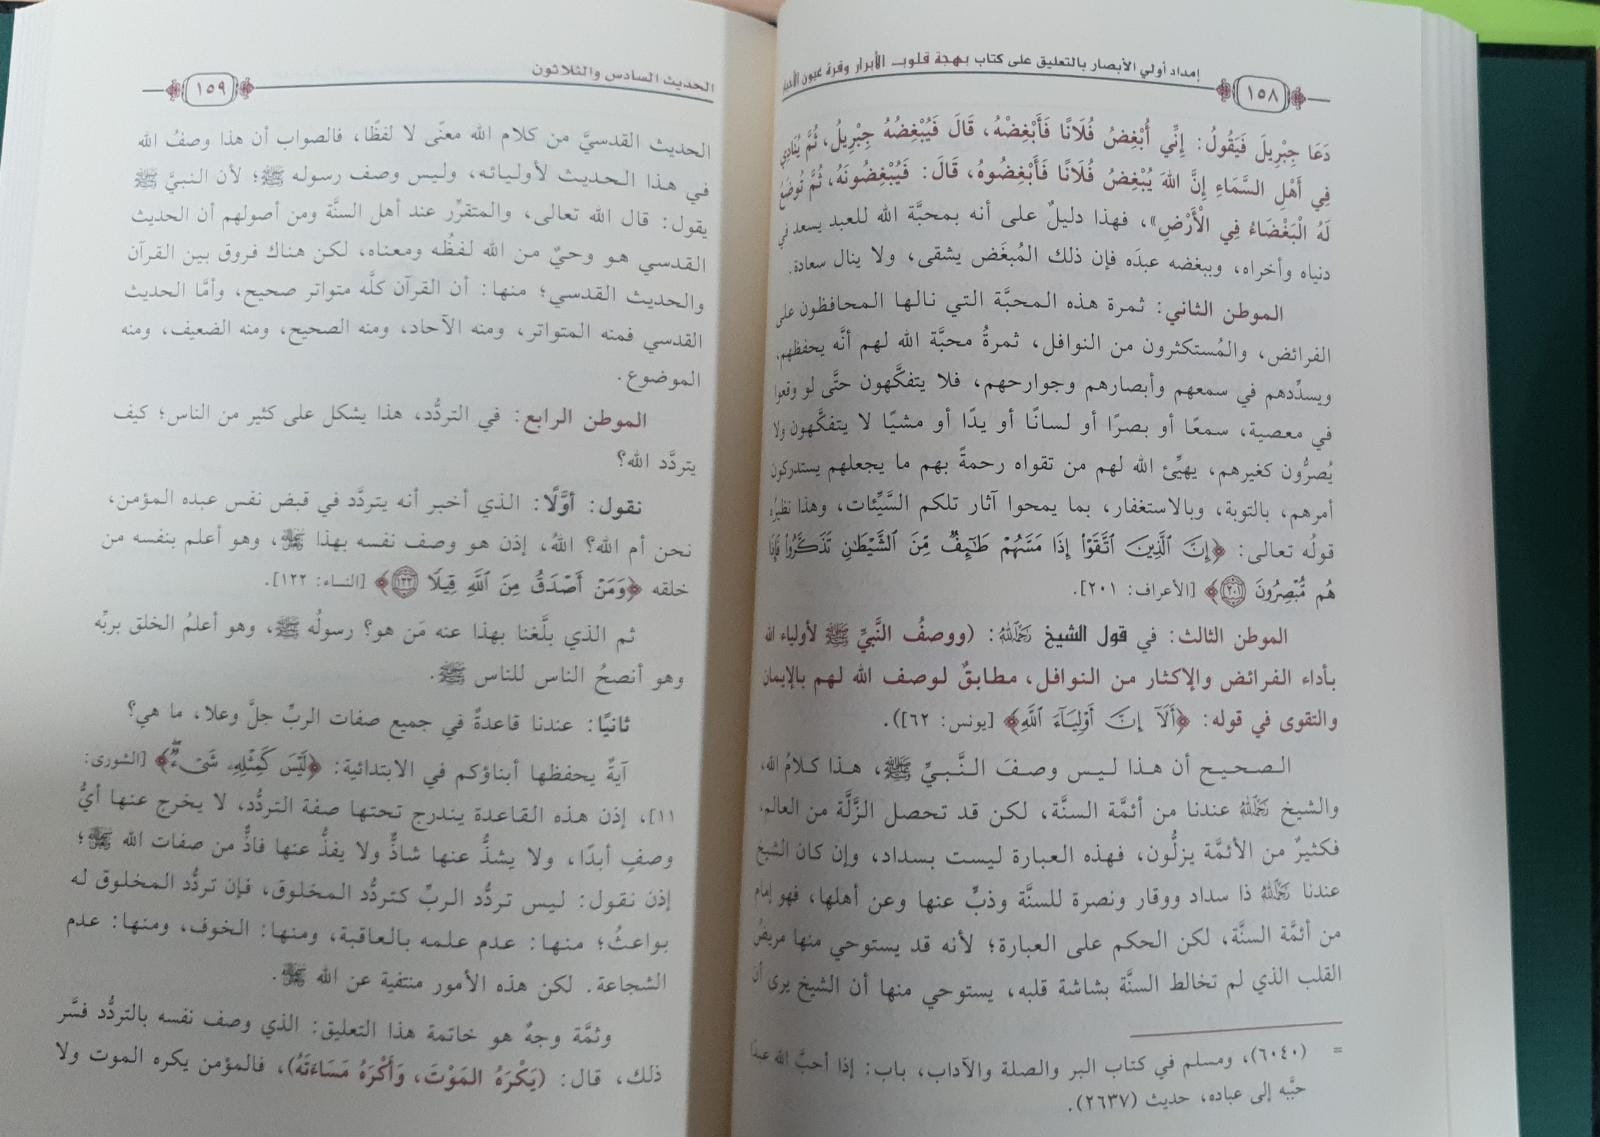 إمداد أولي الأبصار بالتعليق على كتاب بهجة قلوب الأبرار وقرة عيون
١٥٨
دَعَا جِبْرِيلَ فَيَقُولُ: إِنِّي أُبْغِضُ فُلَانًا فَأَبْغِضْهُ، قَالَ فَيُبْغِضُهُ جِبْرِيلُ، ثُمَّ يُنَادِي
فِي أَهْلِ السَّمَاءِ إِنَّ اللهَ يُبْغِضُ فُلَانًا فَأَبْغِضُوهُ، قَالَ: فَيُبْغِضُونَهُ، ثُمَّ تُوضَعُ
لَهُ الْبَغْضَاءُ فِي الْأَرْضِ»، فهذا دليلٌ على أنه بمحبَّة الله للعبد يسعد في
دنياه وأخراه، وببغضه عبدَه فإن ذلك المُبغَض يشقى، ولا ينال سعادة.
الموطن الثاني: ثمرة هذه المحبَّة التي نالها المحافظون على
الفرائض، والمُستكثرون من النوافل، ثمرةُ محبَّة الله لهم أنَّه يحفظهم،
ويسدِّدهم في سمعهم وأبصارهم وجوارحهم، فلا يتفكَّهون حتَّى لو وقعوا
في معصية، سمعًا أو بصرًا أو لسانًا أو يدًا أو مشيًا لا يتفكَّهون ولا
يُصرُّون كغيرهم، يهيِّئ الله لهم من تقواه رحمةً بهم ما يجعلهم يستدركون
أمرهم، بالتوبة، وبالاستغفار، بما يمحوا آثار تلكم السَّيِّئات، وهذا نظيرُه
قولُه تعالى: ﴿إِنَّ ٱلَّذِينَ ٱتَّقَوۡاْ إِذَا مَسَّهُمۡ طَٰٓئِفٞ مِّنَ ٱلشَّيۡطَٰنِ تَذَكَّرُواْ فَإِذَا
هُم مُّبۡصِرُونَ ٢٠١﴾ [الأعراف: ٢٠١].
الموطن الثالث: في قول الشيخ رَحِمَهُ اللهُ: (ووصفُ النَّبيِّ ﷺ لأولياء الله
بأداء الفرائض والإكثار من النوافل، مطابقٌ لوصف الله لهم بالإيمان
والتقوى في قوله: ﴿أَلَآ إِنَّ أَوۡلِيَآءَ ٱللَّهِ﴾ [يونس: ٦٢]).
الصحيح أن هذا ليس وصفَ النَّبيِّ ﷺ، هذا كلامُ الله،
والشيخ رَحِمَهُ اللهُ عندنا من أئمَّة السنَّة، لكن قد تحصل الزَّلَّة من العالم،
فكثيرٌ من الأئمَّة يزلُّون، فهذه العبارة ليست بسداد، وإن كان الشيخ
عندنا رَحِمَهُ اللهُ ذا سداد ووقار ونصرة للسنَّة وذبٍّ عنها وعن أهلها، فهو إمام
من أئمَّة السنَّة، لكن الحكم على العبارة؛ لأنه قد يستوحي منها مريضُ
القلب الذي لم تخالط السنَّة بشاشة قلبه، يستوحي منها أن الشيخ يرى أن
= (٦٠٤٠)، ومسلم في كتاب البر والصلة والآداب، باب: إذا أحبَّ الله عبدًا
حبَّبه إلى عباده، حديث (٢٦٣٧).
الحديث السادس والثلاثون
١٥٩
الحديث القدسيَّ من كلام الله معنًى لا لفظًا، فالصواب أن هذا وصفُ الله
في هذا الحديث لأوليائه، وليس وصف رسوله ﷺ؛ لأن النبيَّ ﷺ
يقول: قال الله تعالى، والمتقرِّر عند أهل السنَّة ومن أصولهم أن الحديث
القدسي هو وحيٌ من الله لفظُه ومعناه، لكن هناك فروق بين القرآن
والحديث القدسي؛ منها: أن القرآن كلَّه متواتر صحيح، وأمَّا الحديث
القدسي فمنه المتواتر، ومنه الآحاد، ومنه الصحيح، ومنه الضعيف، ومنه
الموضوع.
الموطن الرابع: في التردُّد، هذا يشكل على كثير من الناس؛ كيف
يتردَّد الله؟
نقول: أوَّلًا: الذي أخبر أنه يتردَّد في قبض نفس عبده المؤمن،
نحن أم الله؟ اللهُ، إذن هو وصف نفسه بهذا ﷻ، وهو أعلم بنفسه من
خلقه ﴿وَمَنۡ أَصۡدَقُ مِنَ ٱللَّهِ قِيلٗا ١٢٢﴾ [النساء: ١٢٢].
ثم الذي بلَّغنا بهذا عنه مَن هو؟ رسولُه ﷺ، وهو أعلمُ الخلق بربِّه
وهو أنصحُ الناس للناس ﷺ.
ثانيًا: عندنا قاعدةٌ في جميع صفات الربِّ جلَّ وعلا، ما هي؟
آيةٌ يحفظها أبناؤكم في الابتدائية: ﴿لَيۡسَ كَمِثۡلِهِۦ شَيۡءٞۖ﴾ [الشورى:
١١]، إذن هذه القاعدة يندرج تحتها صفة التردُّد، لا يخرج عنها أيُّ
وصفٍ أبدًا، ولا يشذُّ عنها شاذٌّ ولا يفذُّ عنها فاذٌّ من صفات الله ﷻ؛
إذن نقول: ليس تردُّد الربِّ كتردُّد المخلوق، فإن تردُّد المخلوق له
بواعثُ؛ منها: عدم علمه بالعاقبة، ومنها: الخوف، ومنها: عدم
الشجاعة. لكن هذه الأمور منتفية عن الله ﷻ.
وثمَّة وجهٌ هو خاتمة هذا التعليق: الذي وصف نفسه بالتردُّد فسَّر
ذلك، قال: (يَكْرَهُ المَوْتَ، وَأَكْرَهُ مَسَاءَتَهُ)، فالمؤمن يكره الموت ولا